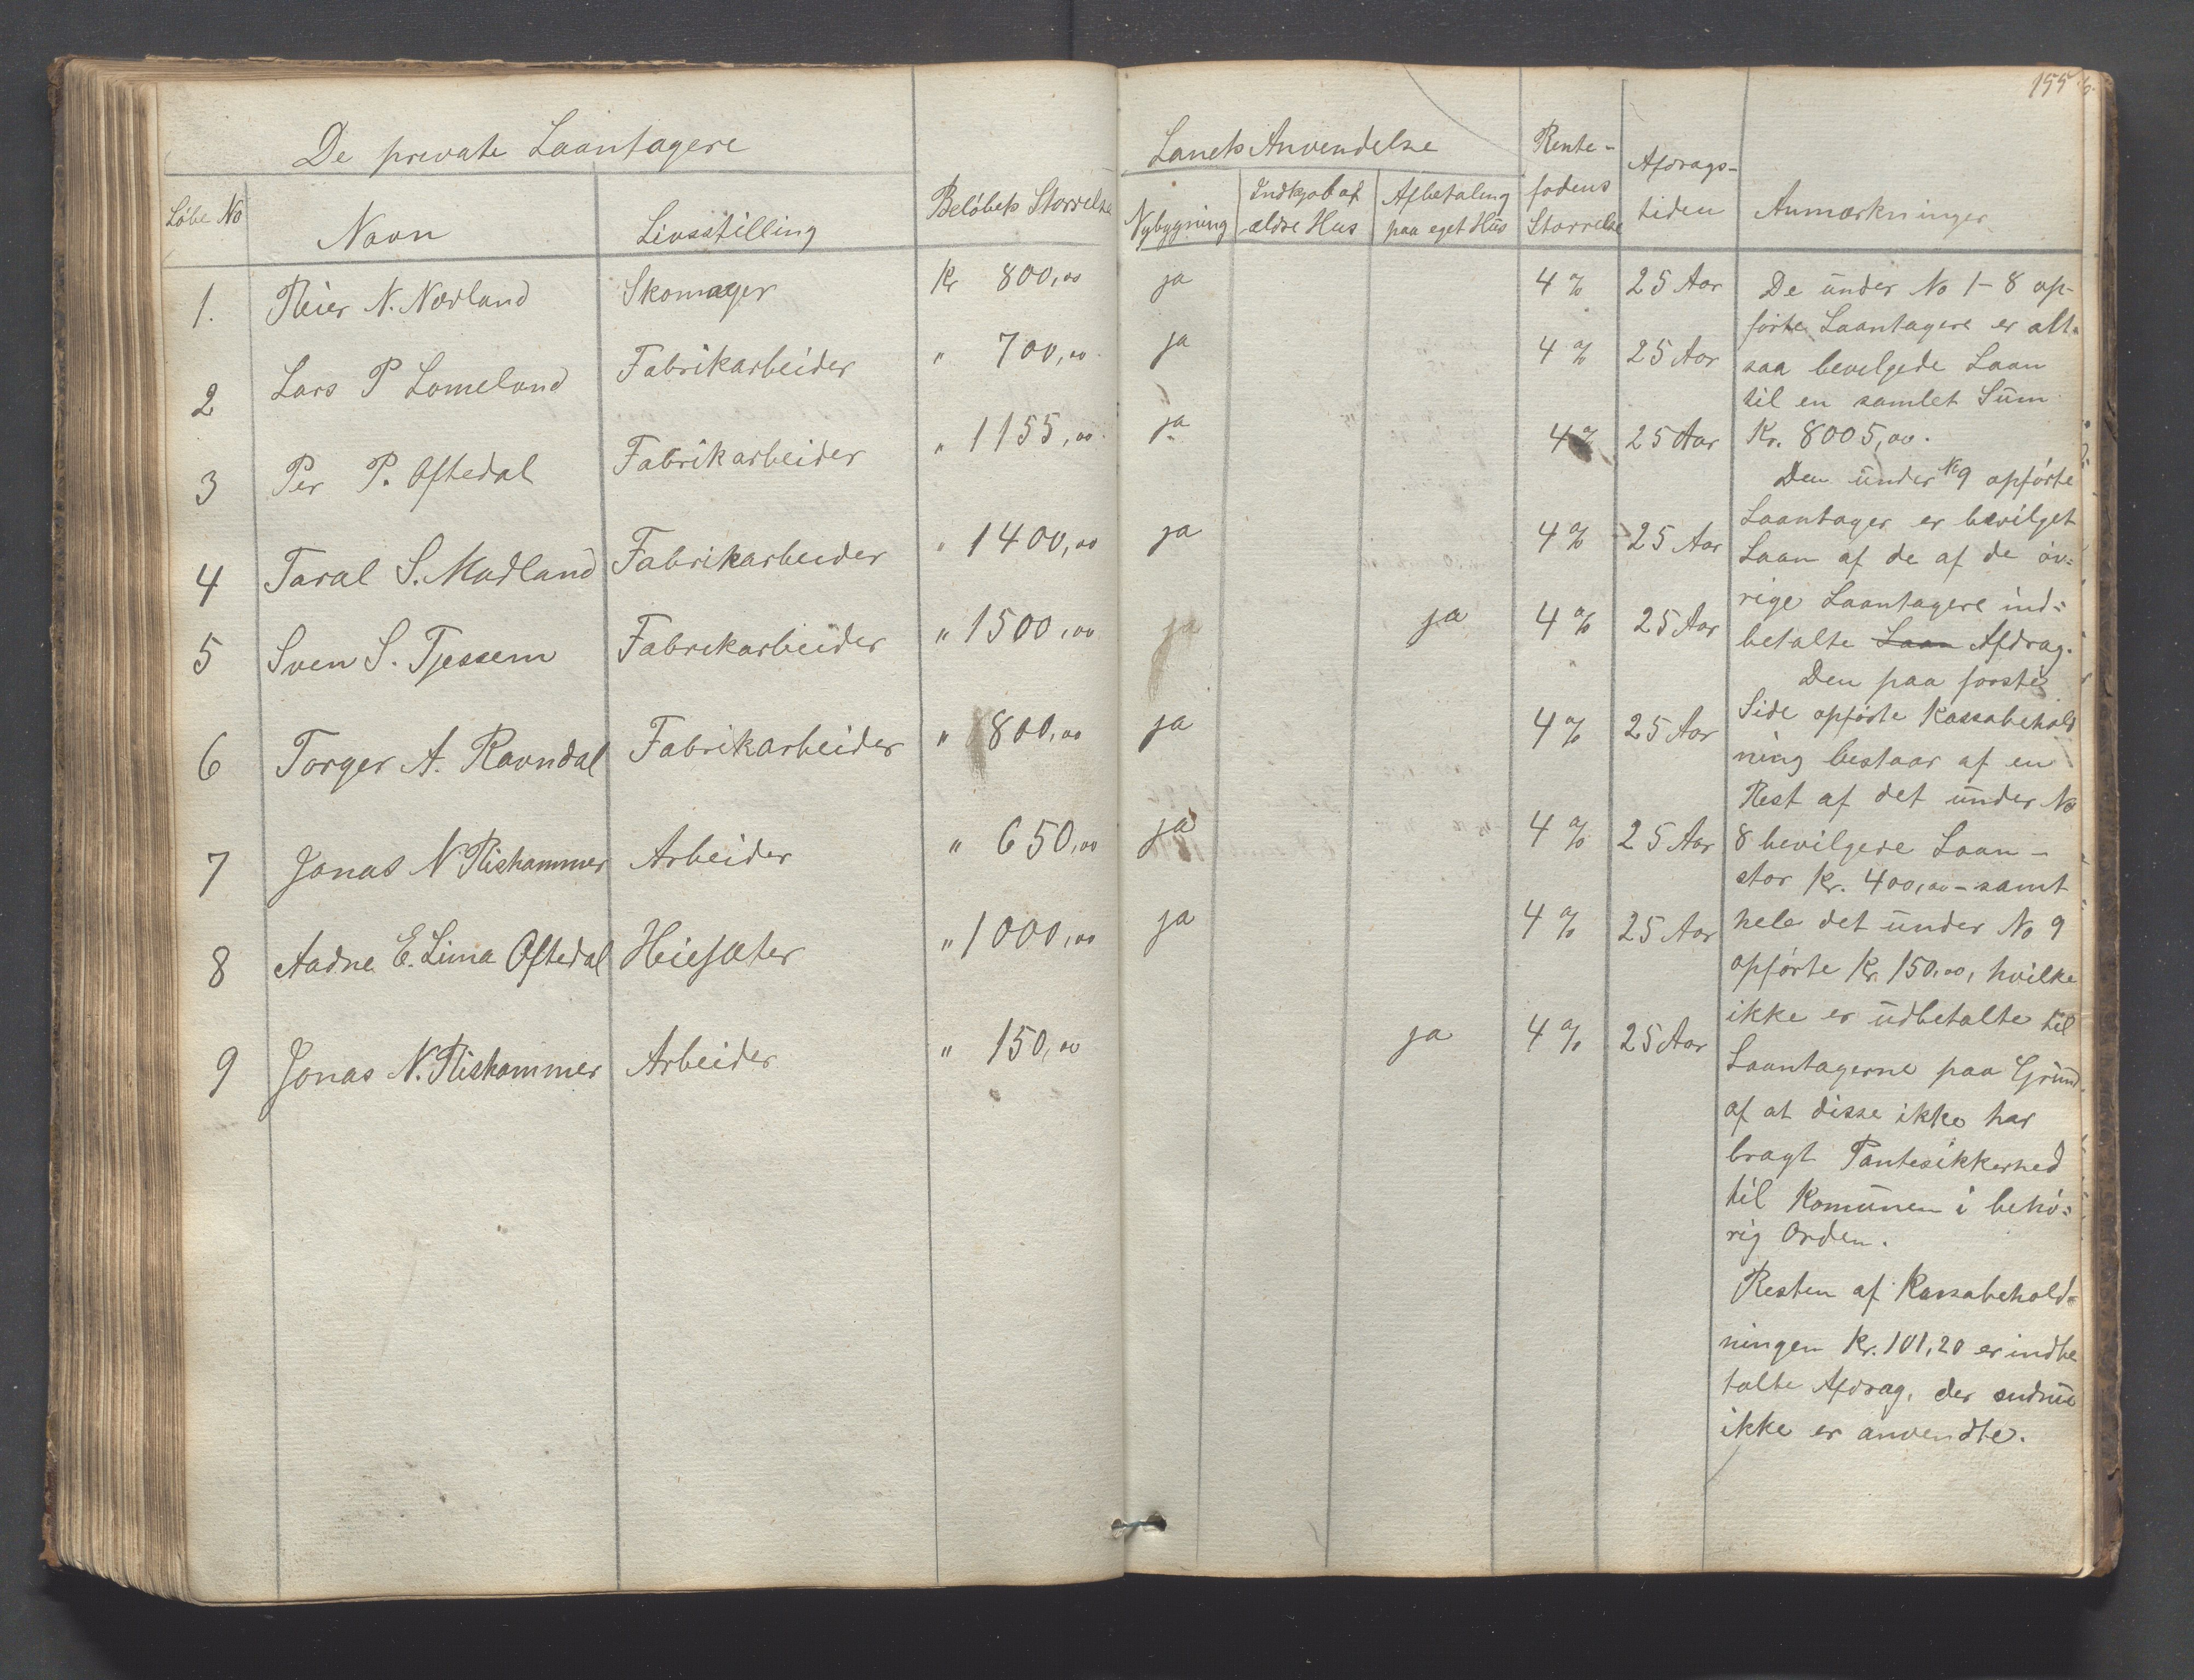 155
De private Laantagere
Lanets Anvendelse
Löbe No
Navn
Livsstilling
Beløbets Storrelse
Nybygning
Indkjøb af
ældre Hus
Afbetaling
paa eget Hus
Rente-
fodens
Storrelse
Afdrags-
tiden
Anmærkninger
1. Reier N. Nærland Skomager Kr 800,00 ja 4% 25 Aar
2 Lars P Lomeland Fabrikarbeider " 700,00 ja 4% 25 Aar
3 Per P. Oftedal Fabrikarbeider " 1155,00 ja 4% 25 Aar
4 Taral S. Madland Fabrikarbeider " 1400,00 ja 4% 25 Aar
5 Sven S. Tjessem Fabrikarbeider " 1500,00 ja 4% 25 Aar
6 Torger A. Ravndal Fabrikarbeider " 800,00 ja 4% 25 Aar
7 Jonas N Rishammer Arbeider " 650,00 ja 4% 25 Aar
8 Aadne E. Lima Oftedal " 1000,00 ja 4% 25 Aar
9 Jonas N. Rishammer Arbeider " 150,00 ja 4% 25 Aar
De under No 1-8 op-
førte Laantagere er alt-
saa bevelgede Laan
til en samlet Sum
Kr. 8005,00.
Den under No 9 opførte
Laantager er bevilget
Laan af de af de öv-
rige Laantagere ind-
betalte Laan Afdrag.
Den paa første
Side opførte Kassabehold
ning bestaar af en
Rest af det under No
8 bevilgede Laan -
stor Kr. 400,00 - samt
hele det under No 9
opførte Kr. 150,00, hvilke
ikke er udbetalte til
Laantagerne paa Grund
af at disse ikke har
bragt Pantesikkerhed
til Komunen i behö-
rig Orden.
Resten af Kassabehold-
ningen Kr. 101,20 er indbe
talte Afdrag, der endnu
ikke er anvendte.